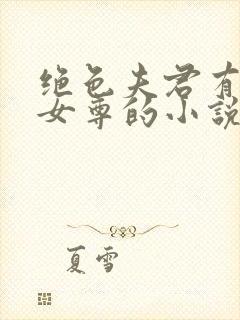 绝色夫君有
女尊的小説
夏雪